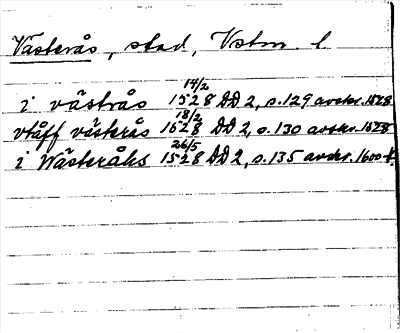 Västerås, stad, Vstm. l
i västrås 14/2 1528 DD 2, s. 129 avskr. 1528
vtåff västerås 18/2 1528 DD 2, s. 130 avskr. 1628
i Wästeråhs 26/5 1528 DD 2, s. 135 avskr. 1600-t.